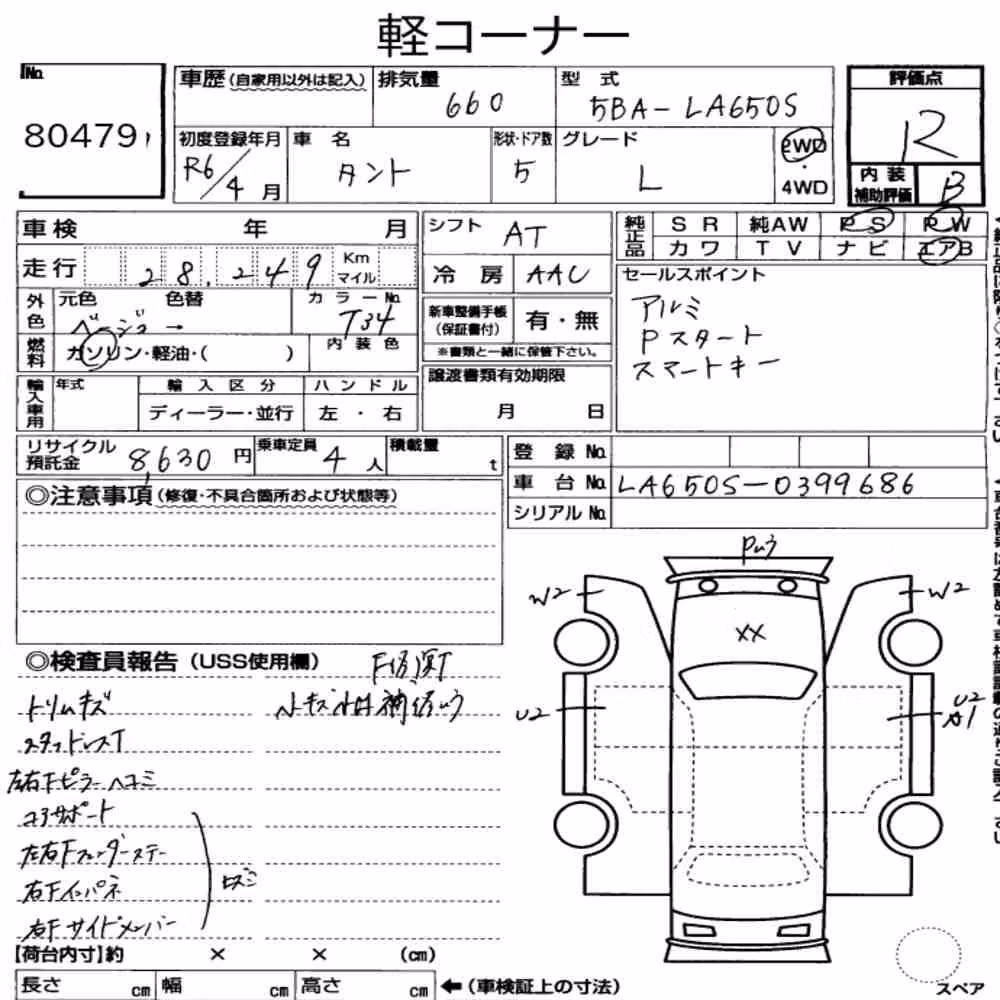 軽コーナー
No. 80479
車歴(自家用以外は記入)
排気量 660
型式 5BA-LA650S
評価点 R
初度登録年月 R6/4月
車名 タント
形状・ドア数 5
グレード L
2WD・4WD
内装補助評価 B
車検 年 月
シフト AT
純正品 SR 純AW PS PW
カワ TV ナビ エアB
走行 28,249 Km マイル
冷房 AAC
セールスポイント
アルミ
Pスタート
スマートキー
外色 元色 ベージュ 色替 →
カラーNo. T34
新車整備手帳(保証書付) 有・無
※書類と一緒に保管下さい。
燃料 ガソリン・軽油・( )
内装色
輸入車用 年式 輸入区分 ハンドル
ディーラー・並行 左・右
譲渡書類有効期限
月 日
リサイクル預託金 8,630円
乗車定員 4人
積載量 t
登録No.
車台No. LA650S-0399686
シリアルNo.
◎注意事項(修復・不具合箇所および状態等)
◎検査員報告(USS使用欄)
トリムキズ
スタッドレスT
左右Fピラーヘコミ
コアサポート
左右Fフェンダーステー
右Fインパネ
右Fサイドメンバー
小キズ
W2
W2
XX
U2
U2
A1
【荷台内寸】約 × × (cm)
長さ cm 幅 cm 高さ cm ←(車検証上の寸法)
スペア